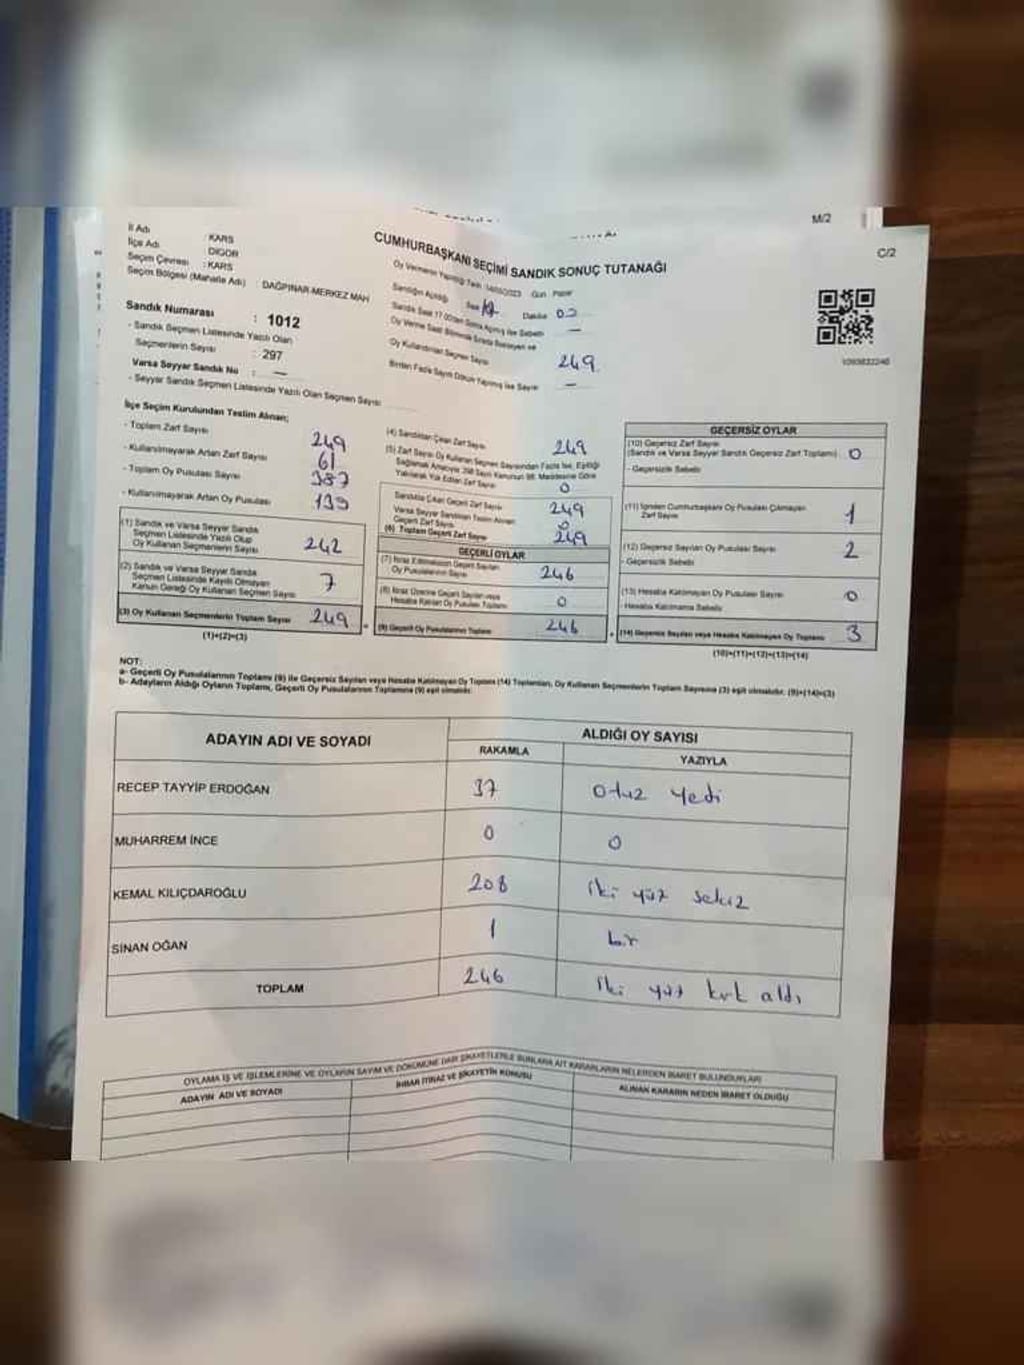 M/2
C/2
CUMHURBAŞKANI SEÇİMİ SANDIK SONUÇ TUTANAĞI
İl Adı : KARS
İlçe Adı : DIGOR
Seçim Çevresi : KARS
Seçim Bölgesi (Mahalle Adı) : DAĞPINAR-MERKEZ MAH
Sandık Numarası : 1012
- Sandık Seçmen Listesinde Yazılı Olan
Seçmenlerin Sayısı : 297
Varsa Seyyar Sandık No : —
- Seyyar Sandık Seçmen Listesinde Yazılı Olan Seçmen Sayısı
Oy Vermenin Yapıldığı Tarih : 14/05/2023 Gün : Pazar
Sandığın Açıldığı Saat Dakika 02
Oy Kullandırılan Seçmen Sayısı 249
Birden Fazla Sayım Döküm Yapılmış İse Sayısı —
İlçe Seçim Kurulundan Teslim Alınan;
- Toplam Zarf Sayısı
- Kullanılmayarak Artan Zarf Sayısı 61
- Toplam Oy Pusulası Sayısı 387
- Kullanılmayarak Artan Oy Pusulası 139
(1) Sandık ve Varsa Seyyar Sandık
Seçmen Listesinde Yazılı Olup
Oy Kullanan Seçmenlerin Sayısı 242
(2) Sandık ve Varsa Seyyar Sandık
Seçmen Listesinde Kayıtlı Olmayan
Kanun Gereği Oy Kullanan Seçmen Sayısı 7
(3) Oy Kullanan Seçmenlerin Toplam Sayısı 249
(1)+(2)=(3)
(4) Sandıktan Çıkan Zarf Sayısı 249
(5) Zarf Sayısı Oy Kullanan Seçmen Sayısından Fazla İse, Eşitliği
Sağlamak Amacıyla 298 Sayılı Kanunun 98. Maddesine Göre
Yakılarak Yok Edilen Zarf Sayısı 0
Sandıkta Çıkan Geçerli Zarf Sayısı 249
Varsa Seyyar Sandıktan Teslim Alınan
Geçerli Zarf Sayısı 0
(6) Toplam Geçerli Zarf Sayısı 249
GEÇERLİ OYLAR
(7) İtiraz Edilmeksizin Geçerli Sayılan
Oy Pusulalarının Sayısı 246
(8) İtiraz Üzerine Geçerli Sayılan veya
Hesaba Katılan Oy Pusulası Toplamı 0
(9) Geçerli Oy Pusulalarının Toplamı 246
GEÇERSİZ OYLAR
(10) Geçersiz Zarf Sayısı
(Sandık ve Varsa Seyyar Sandık Geçersiz Zarf Toplamı) 0
- Geçersizlik Sebebi
(11) İçinden Cumhurbaşkanı Oy Pusulası Çıkmayan
Zarf Sayısı 1
(12) Geçersiz Sayılan Oy Pusulası Sayısı 2
- Geçersizlik Sebebi
(13) Hesaba Katılmayan Oy Pusulası Sayısı 0
- Hesaba Katılmama Sebebi
(14) Geçersiz Sayılan veya Hesaba Katılmayan Oy Toplamı 3
(10)+(11)+(12)+(13)=(14)
NOT:
a- Geçerli Oy Pusulalarının Toplamı (9) ile Geçersiz Sayılan veya Hesaba Katılmayan Oy Toplamı (14) Toplamları, Oy Kullanan Seçmenlerin Toplam Sayısına (3) eşit olmalıdır. (9)+(14)=(3)
b- Adayların Aldığı Oyların Toplamı, Geçerli Oy Pusulalarının Toplamına (9) eşit olmalıdır.
ADAYIN ADI VE SOYADI ALDIĞI OY SAYISI
RAKAMLA YAZIYLA
RECEP TAYYİP ERDOĞAN 37 Otuz Yedi
MUHARREM İNCE 0 0
KEMAL KILIÇDAROĞLU 208 iki yüz sekiz
SİNAN OĞAN 1 bir
TOPLAM 246 iki yüz kırk aldı
OYLAMA İŞ VE İŞLEMLERİNE VE OYLARIN SAYIM VE DÖKÜMÜNE DAİR ŞİKAYETLERLE BUNLARA AİT KARARLARIN NELERDEN İBARET BULUNDUKLARI
ADAYIN ADI VE SOYADI İHBAR İTİRAZ VE ŞİKAYETİN KONUSU ALINAN KARARIN NEDEN İBARET OLDUĞU